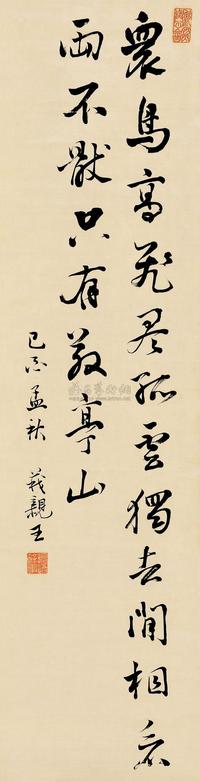 眾鳥高飛盡孤雲獨去閒相看
兩不猒只有敬亭山
孟秋 親王